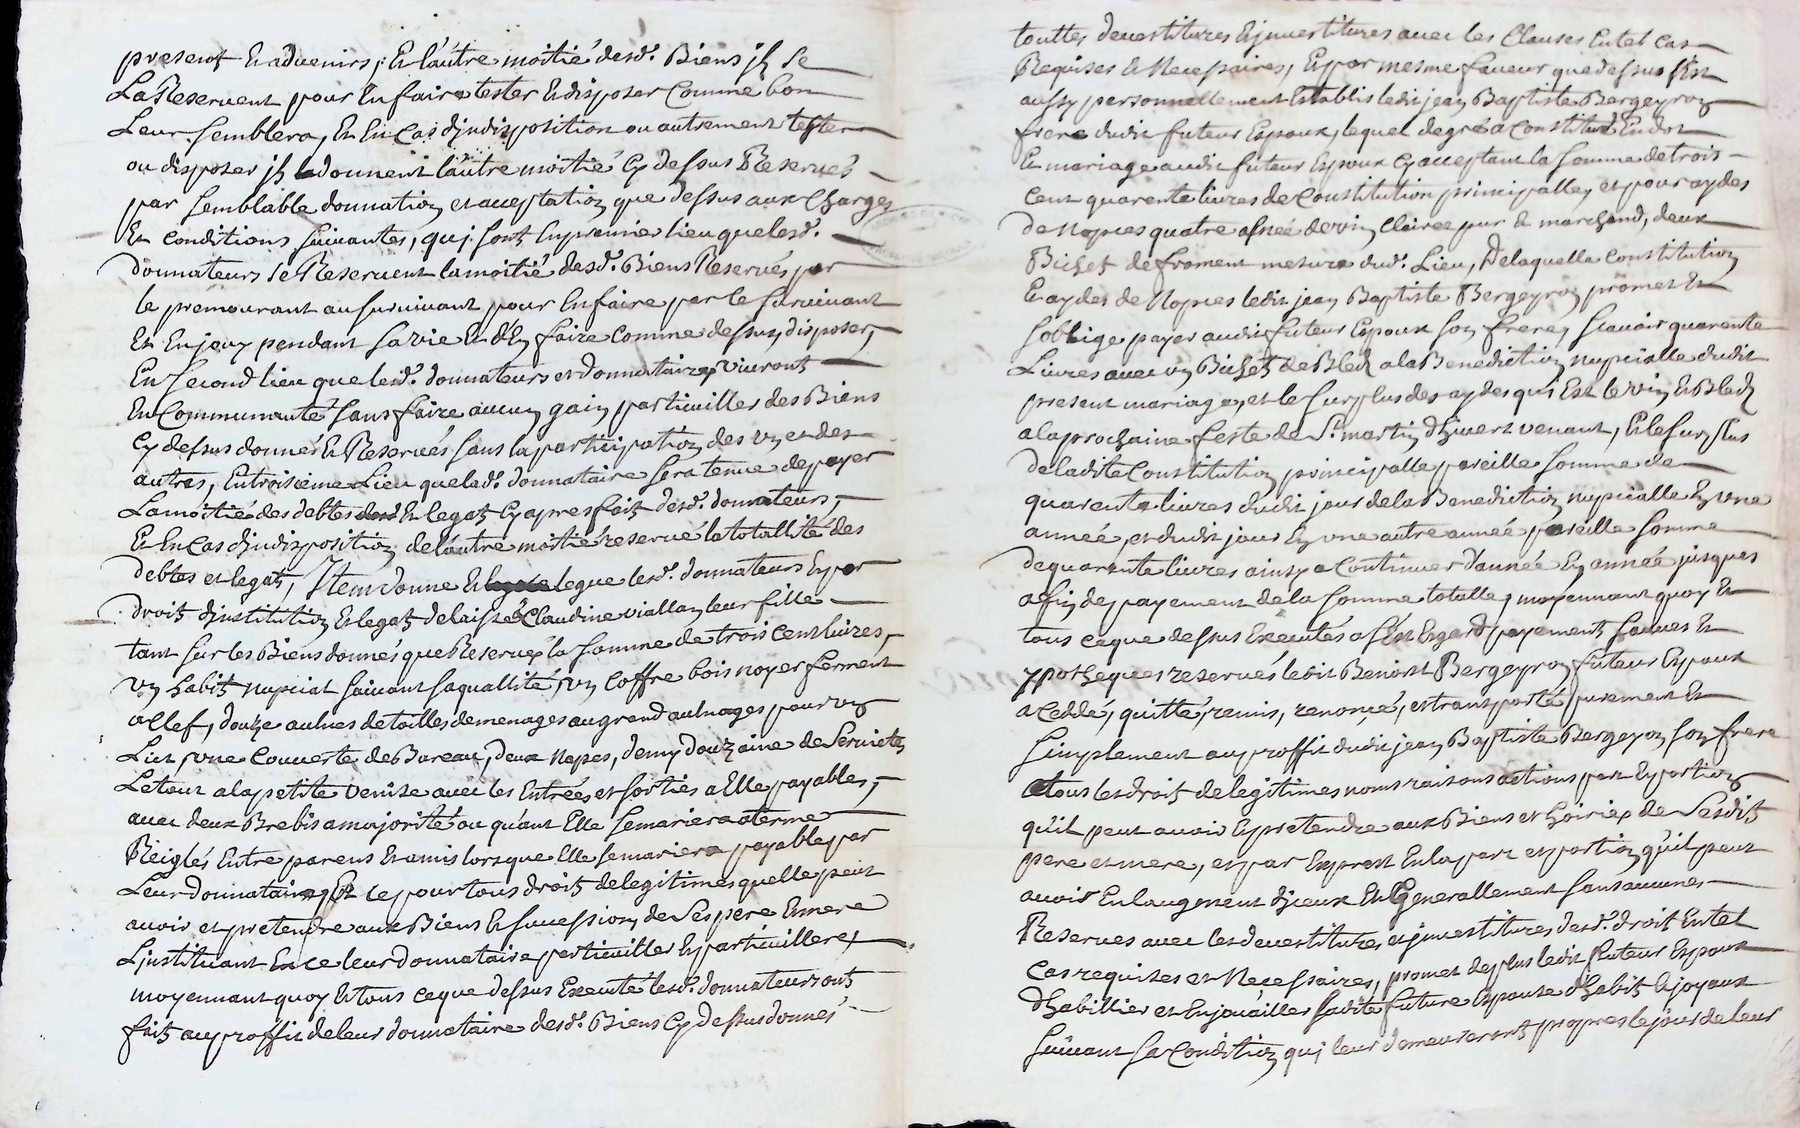 presens et advenirs, et lautre moitié desd. Biens jls se
La Reservent pour En faire tester Et disposer Comme bon
Leur Semblera, Et En Cas djndisposition ou autrement tester
ou disposer jls la donnent lautre moitié Cy dessus Reservés
par Semblable donnation et acceptation que dessus aux Charges
Et Conditions Suivantes, quj sont En premier lieu que lesd.
donnateurs se Reservent la moitié desd. Biens Reservés par
le premourant au survivant pour En faire par le survivant
Et En jouy pendant sa vie Et d'En faire Comme dessus, disposer,
En Second lieu que lesd. donnateurs et donnataire vivront
En Communauté sans faire aucun gain particuillier des Biens
Cy dessus donnés Et Reservés sans la participation des un et des
autres, En troisieme Lieu que lad. donnataire sera tenue de payer
La moitié des debtes Et legats Cy apres faits desd. donnateurs,
Et En Cas djndisposition de lautre moitié reservé la totallité des
debtes et legats, Item donne Et legue lesd. donnateurs Et par
droit djnstitution Et legats delaissé a Claudine viallon leur fille
tant sur les Biens donnés que Reservés la somme de trois cent livres,
un habits nupcial suivant sa quallité, un Coffre bois noyer fermant
a Clef, douze aulnes de toilles de menages au grand aulnages pour un
Lict, une Couverte de Bureau, deux Napes, demy douzaine de Serviettes
Le tout a la petite venise avec les Entrées et sorties a Elle payables,
avec deux Brebis a majorité ou quant Elle se mariera a terme
Reiglés Entre parens Et amis lorsque Elle se mariera payable par
Leur donnataire, Et ce pour tous droits de legitimes quelle peut
avoir et pretendre aux Biens Et succession de Ses pere Et mere
L'jnstituant En ce leur donnataire particuillier Et particuilliere,
moyennant quoy Et tous ce que dessus Executé lesd. donnateurs ont
faits au proffit de leur donnataire desd. Biens Cy dessus donnés
touttes devestitures Et jnvestitures avec les Clauses En tel Cas
Requises Et Necessaires, Et par mesme faveur que dessus s'Est
aussy personnellement Establis ledit jean Baptiste Bergeyron
frere dudit futeur Espoux, lequel de gré a Constitué En dot
Et mariage audit futeur Espoux Cy acceptant la somme de trois
Cent quarente livres de Constitution principalle, et pour aydes
de Nopces quatre asneé de vin Clairet pur Et marchand, deux
Bichets de froment mesure dud. Lieu, De laquelle Constitution
Et aydes de Nopces ledit jean Baptiste Bergeyron promet Et
s'obblige payer audit futeur Espoux son frere, Scavoir quarente
Livres avec un Bichets de Bled a la Benediction nupcialle dudit
present mariage, et le surplus des aydes qui Est le vin Et Bled
a la prochaine feste de St. martin d'hivert venant, Et le surplus
de ladite Constitution principalle pareille somme de
quarente livres dudit jour de la Benediction nupcialle En une
année, et dudit jour En une autre année pareille somme
de quarante livres ainsy a Continuer d'année En année jusques
a fin de payement de la somme totalle, moyennant quoy Et
tous ce que dessus Executés a s'Est Esgard payements saulves Et
ypotheques reservés ledit Benoist Bergeyron futeur Espoux
a Ceddé, quitté, remis, renoncé, et transporté purement Et
simplement au proffit dudit jean Baptiste Bergeyron son frere
tous les droits de legitimes noms raisons actions part Et portion
qu'il peut avoir Et pretendre aux Biens et hoiries de Sesdits
pere et mere, et par Exprest En la part et portion qu'il peut
avoir En laugment djceux Et Generallement sans aucunes
Reserves avec les devestitures et jnvestitures desd. droits En tel
Cas requises et Necessaires, promet de plus ledit futeur Espoux
d'habillier et Enjouailler sadite future Espouse d'habits Et joyaux
suivant sa Condition quj leur demeureront propres le jour de leur